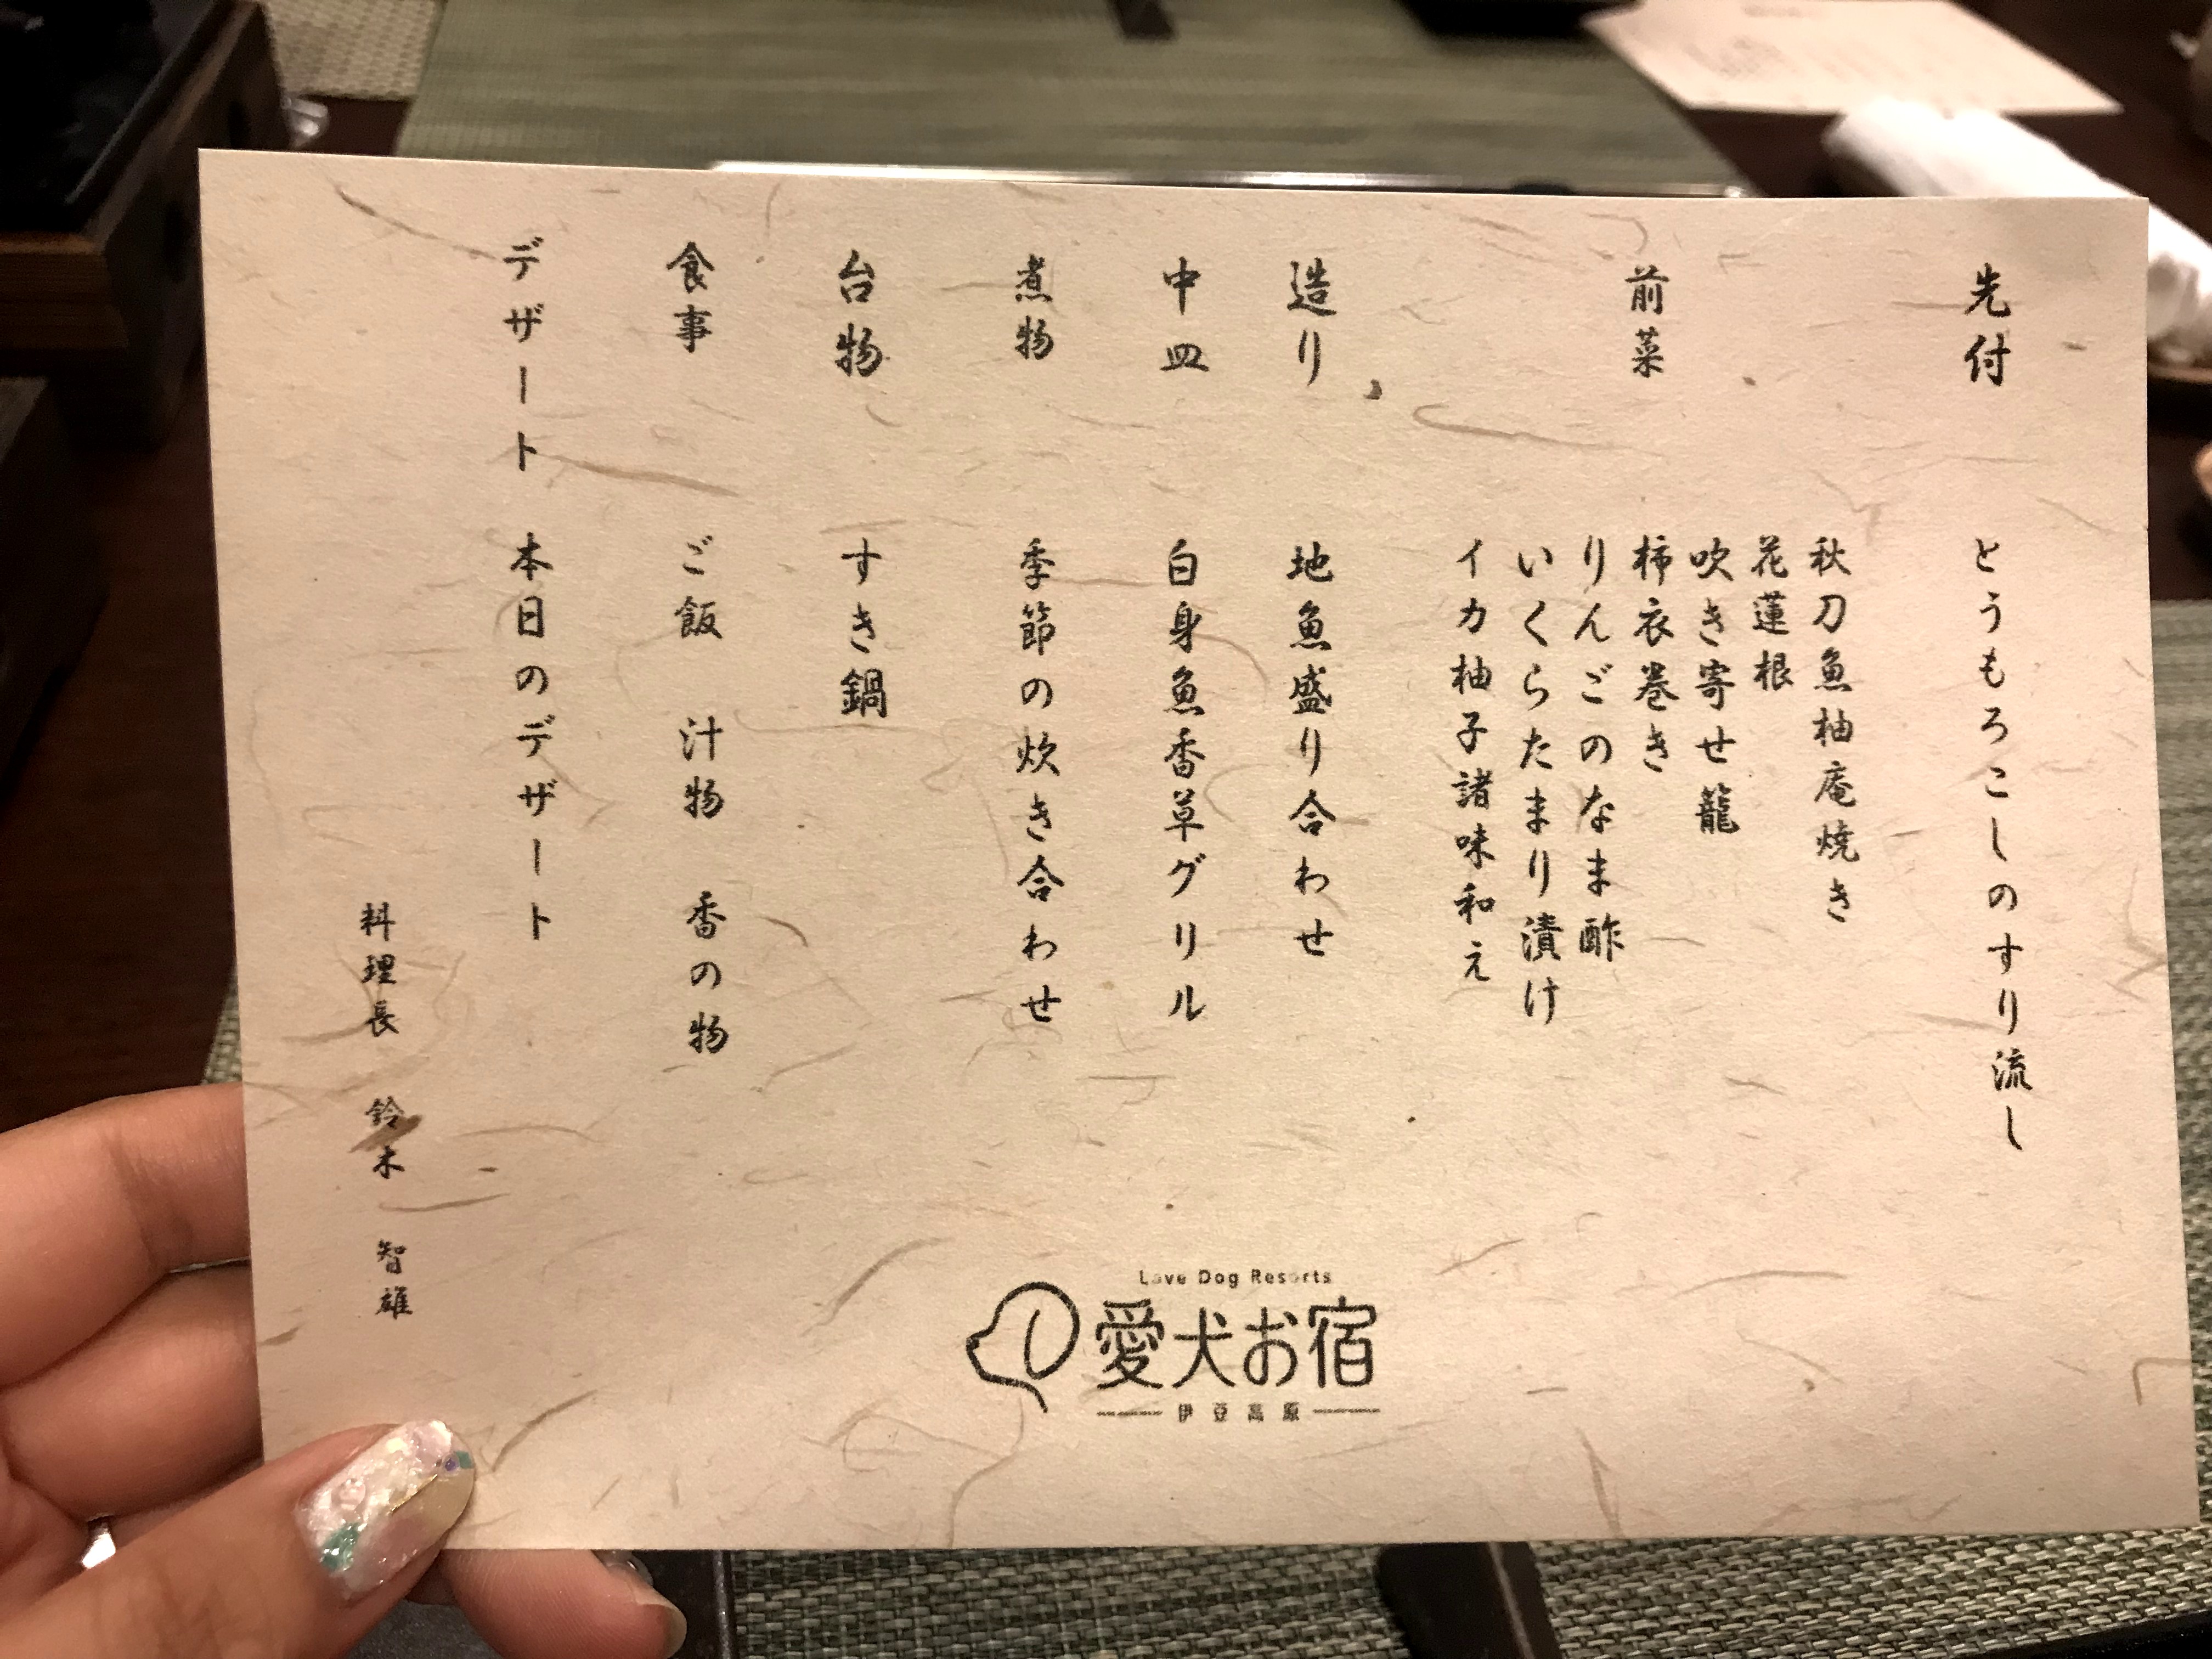 先付 とうもろこしのすり流し
前菜
秋刀魚柚庵焼き
花蓮根
吹き寄せ籠
柿衣巻き
りんごのなま酢
いくらたまり漬け
イカ柚子諸味和え
造り 地魚盛り合わせ
中皿 白身魚香草グリル
煮物 季節の炊き合わせ
台物 すき鍋
食事 ご飯 汁物 香の物
デザート 本日のデザート
料理長 鈴木 智雄
Love Dog Resorts
愛犬お宿
伊豆高原